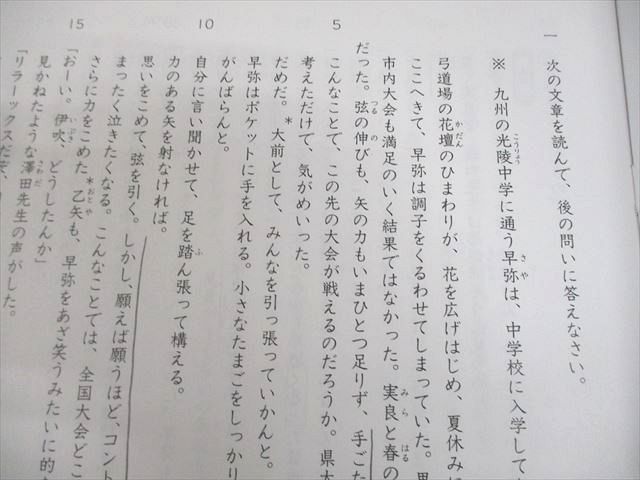 一　次の文章を読んで、後の問いに答えなさい。
※　九州の光陵中学に通う早弥は、中学校に入学して
弓道場の花壇のひまわりが、花を広げはじめ、夏休みに
ここへきて、早弥は調子をくるわせてしまっていた。
市内大会も満足のいく結果ではなかった。実良と春の
だった。弦の伸びも、矢の力もいまひとつ足りず、手ごた
こんなことで、この先の大会が戦えるのだろうか。県大
考えただけで、気がめいった。
だめだ。＊大前として、みんなを引っ張っていかんと。
早弥はポケットに手を入れる。小さなたまごをしっかり
がんばらんと。
自分に言い聞かせて、足を踏ん張って構える。
力のある矢を射なければ。
思いをこめて、弦を引く。しかし、願えば願うほど、コント
まったく泣きたくなる。こんなことでは、全国大会どこ
さらに力をこめた＊乙矢も、早弥をあざ笑うみたいに的を
「おーい。伊吹、どうしたんか」
見かねたような澤田先生の声がした。
「リラーックスだぞ、
5
10
15